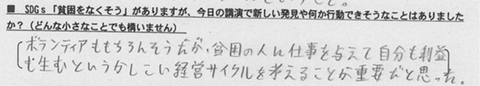 ■ SDGs「貧困をなくそう」がありますが、今日の講演で新しい発見や何か行動できそうなことはありました
か？（どんな小さなことでも構いません）
ボランティアももちろんそうだが、貧困の人に仕事を与えて自分も利益
も生むというかしこい経営サイクルを考えることが重要だと思った。